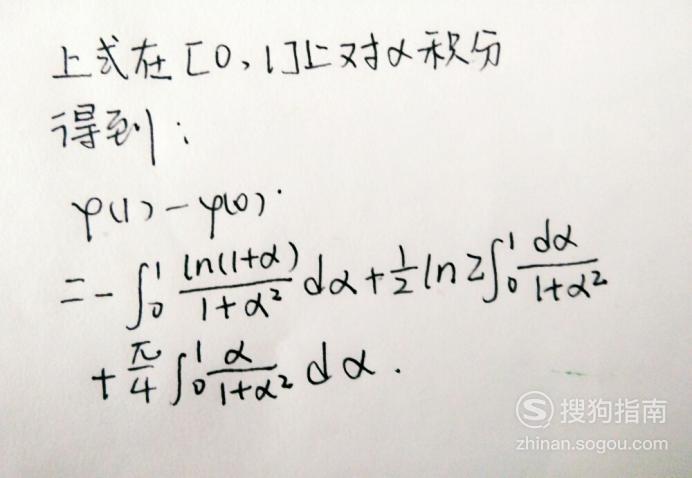 上式在[0,1]上对α积分
得到:
φ(1)-φ(0).
=-∫₀¹ ln(1+α)/(1+α²) dα+½ln2∫₀¹ dα/(1+α²)
+π/4∫₀¹ α/(1+α²) dα.
S 搜狗指南
zhinan.sogou.com